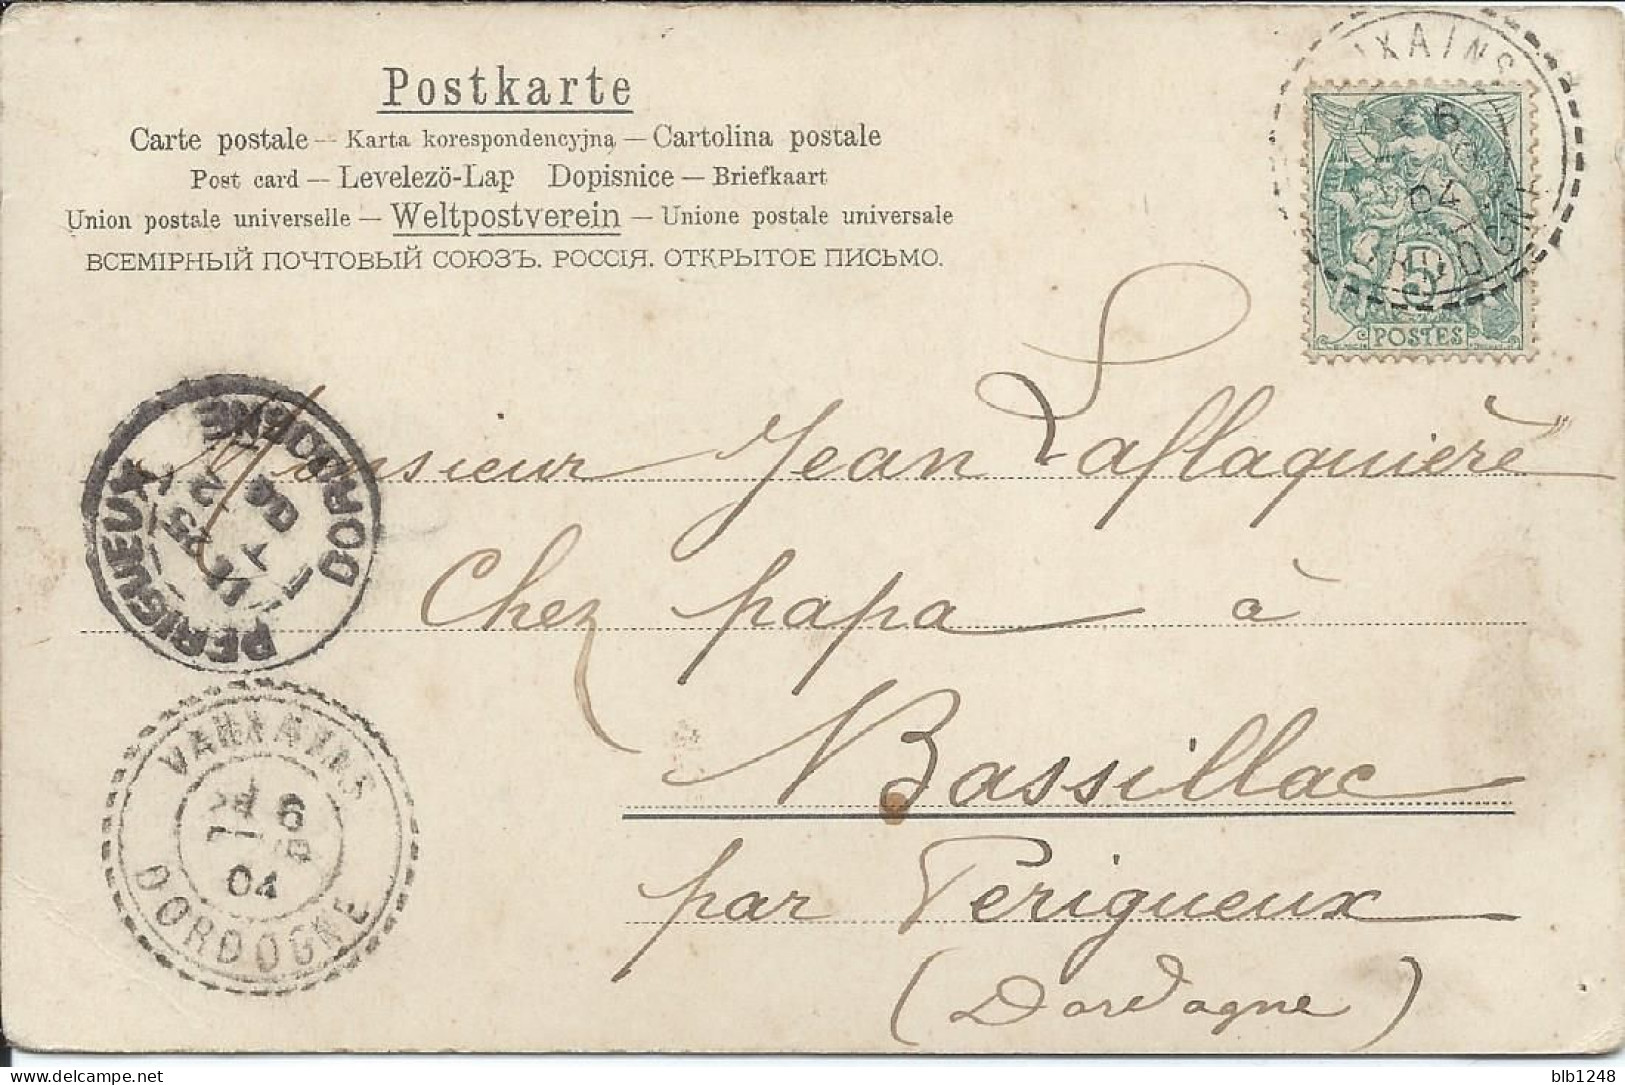 Postkarte
Carte postale — Karta korespondencyjna — Cartolina postale
Post card — Levelezö-Lap Dopisnice — Briefkaart
Union postale universelle — Weltpostverein — Unione postale universale
ВСЕМІРНЫЙ ПОЧТОВЫЙ СОЮЗЪ. РОССІЯ. ОТКРЫТОЕ ПИСЬМО.
IXAINS
26
04
5
POSTES
Monsieur Jean Laflaquière
Chez papa à
Bassillac
par Périgueux
(Dordogne)
PERIGUEUX
DORDOGNE
DORDOGNE
6
04
blb1248